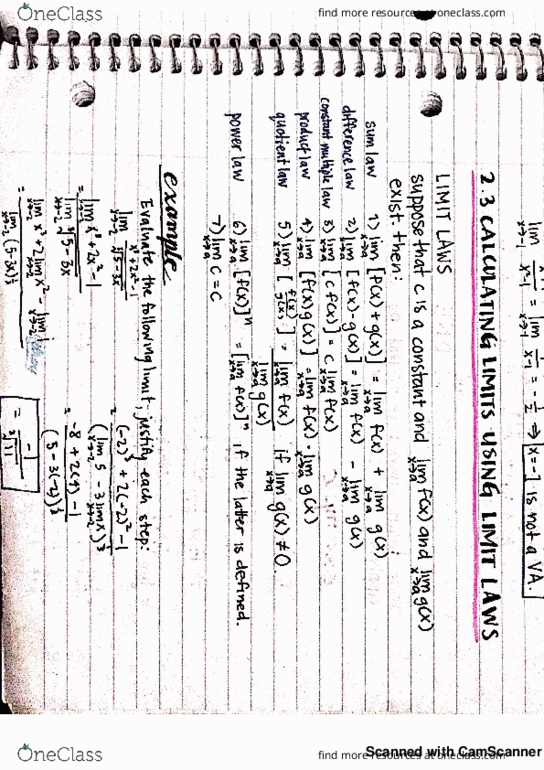 OneClass
find more resources at oneclass.com
lim x→-1 x+1/x²-1 = lim x→-1 1/x-1 = -1/2 ⇒ x=-1 is not a VA.
2.3 CALCULATING LIMITS USING LIMIT LAWS
LIMIT LAWS
suppose that c is a constant and lim x→a f(x) and lim x→a g(x)
exist then:
sum law 1) lim x→a [f(x) + g(x)] = lim x→a f(x) + lim x→a g(x)
difference law 2) lim x→a [f(x) - g(x)] = lim x→a f(x) - lim x→a g(x)
constant multiple law 3) lim x→a [c f(x)] = c lim x→a f(x)
product law 4) lim x→a [f(x)g(x)] = lim x→a f(x) · lim x→a g(x)
quotient law 5) lim x→a [f(x)/g(x)] = lim x→a f(x) / lim x→a g(x) if lim x→a g(x) ≠ 0.
power law 6) lim x→a [f(x)]ⁿ = [lim x→a f(x)]ⁿ if the latter is defined.
7) lim x→a c = c
example
Evaluate the following limit, justify each step:
lim x→-2 x³+2x²-1 / ³√5-3x
= lim x→-2 x³+2x²-1 / lim x→-2 ³√5-3x
= lim x→-2 x³ + 2 lim x→-2 x² - lim x→-2 / lim x→-2 (5-3x)^⅓
= (-2)³ + 2(-2)² - 1 / (lim x→-2 5 - 3 lim x→-2 x)^⅓
= -8 + 2(4) - 1 / (5 - 3(-2))^⅓
= -1 / ³√11
Scanned with CamScanner
OneClass
find more resources at oneclass.com